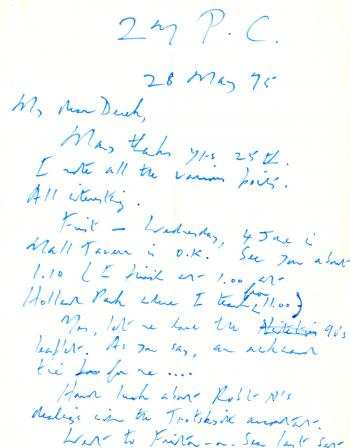 P. C.
28 May 75
My dear Derek,
Many thanks yrs 25th.
I note all the various points.
All interesting.
First — Wednesday, 4 June is
Mall Tavern is O.K. See you about
1.10 (I finish at 1.00 at
Holland Park where I teach from 11.00)
Yes, let me have the 90's
leaflet. As you say, an awkward
time for me ....
Hard luck about Robt N's
dealings with the Trotskyist
Went to - on - See last Sat